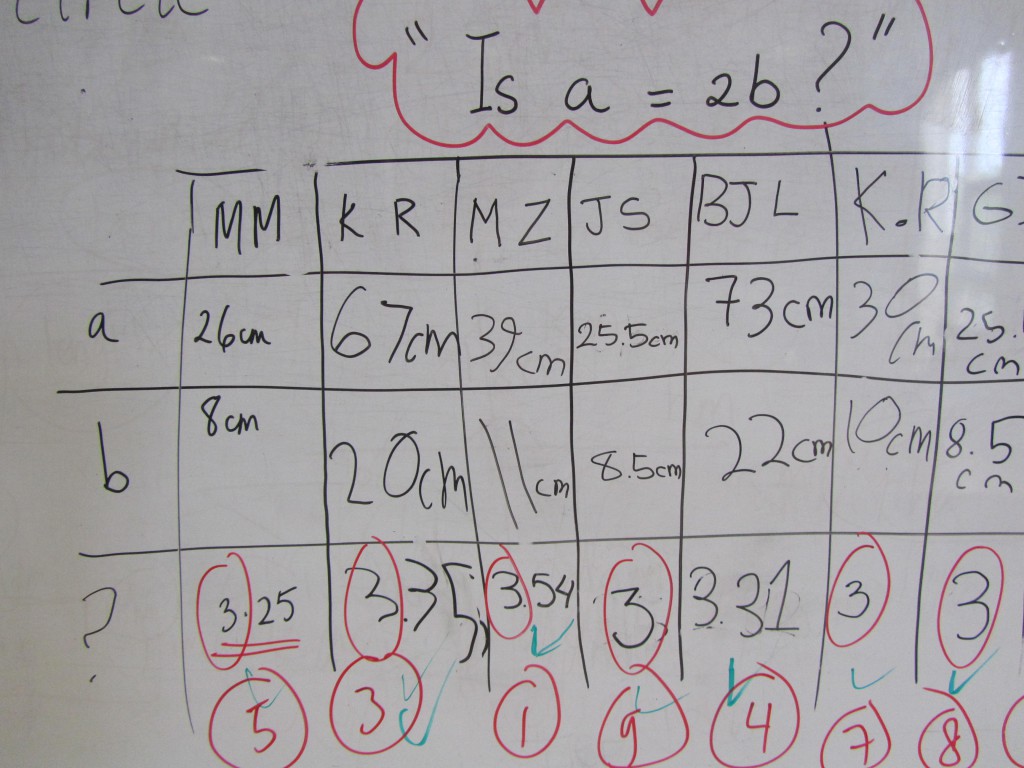 "Is a = 2b?"
MM K R M Z JS BJL K.R
a 26cm 67cm 39cm 25.5cm 73cm 30cm 25.
cm
b 8cm 20cm 11cm 8.5cm 22cm 10cm 8.5
cm
? 3.25 3.35 3.54 3 3.31 3 3
5 3 1 9 4 7 8